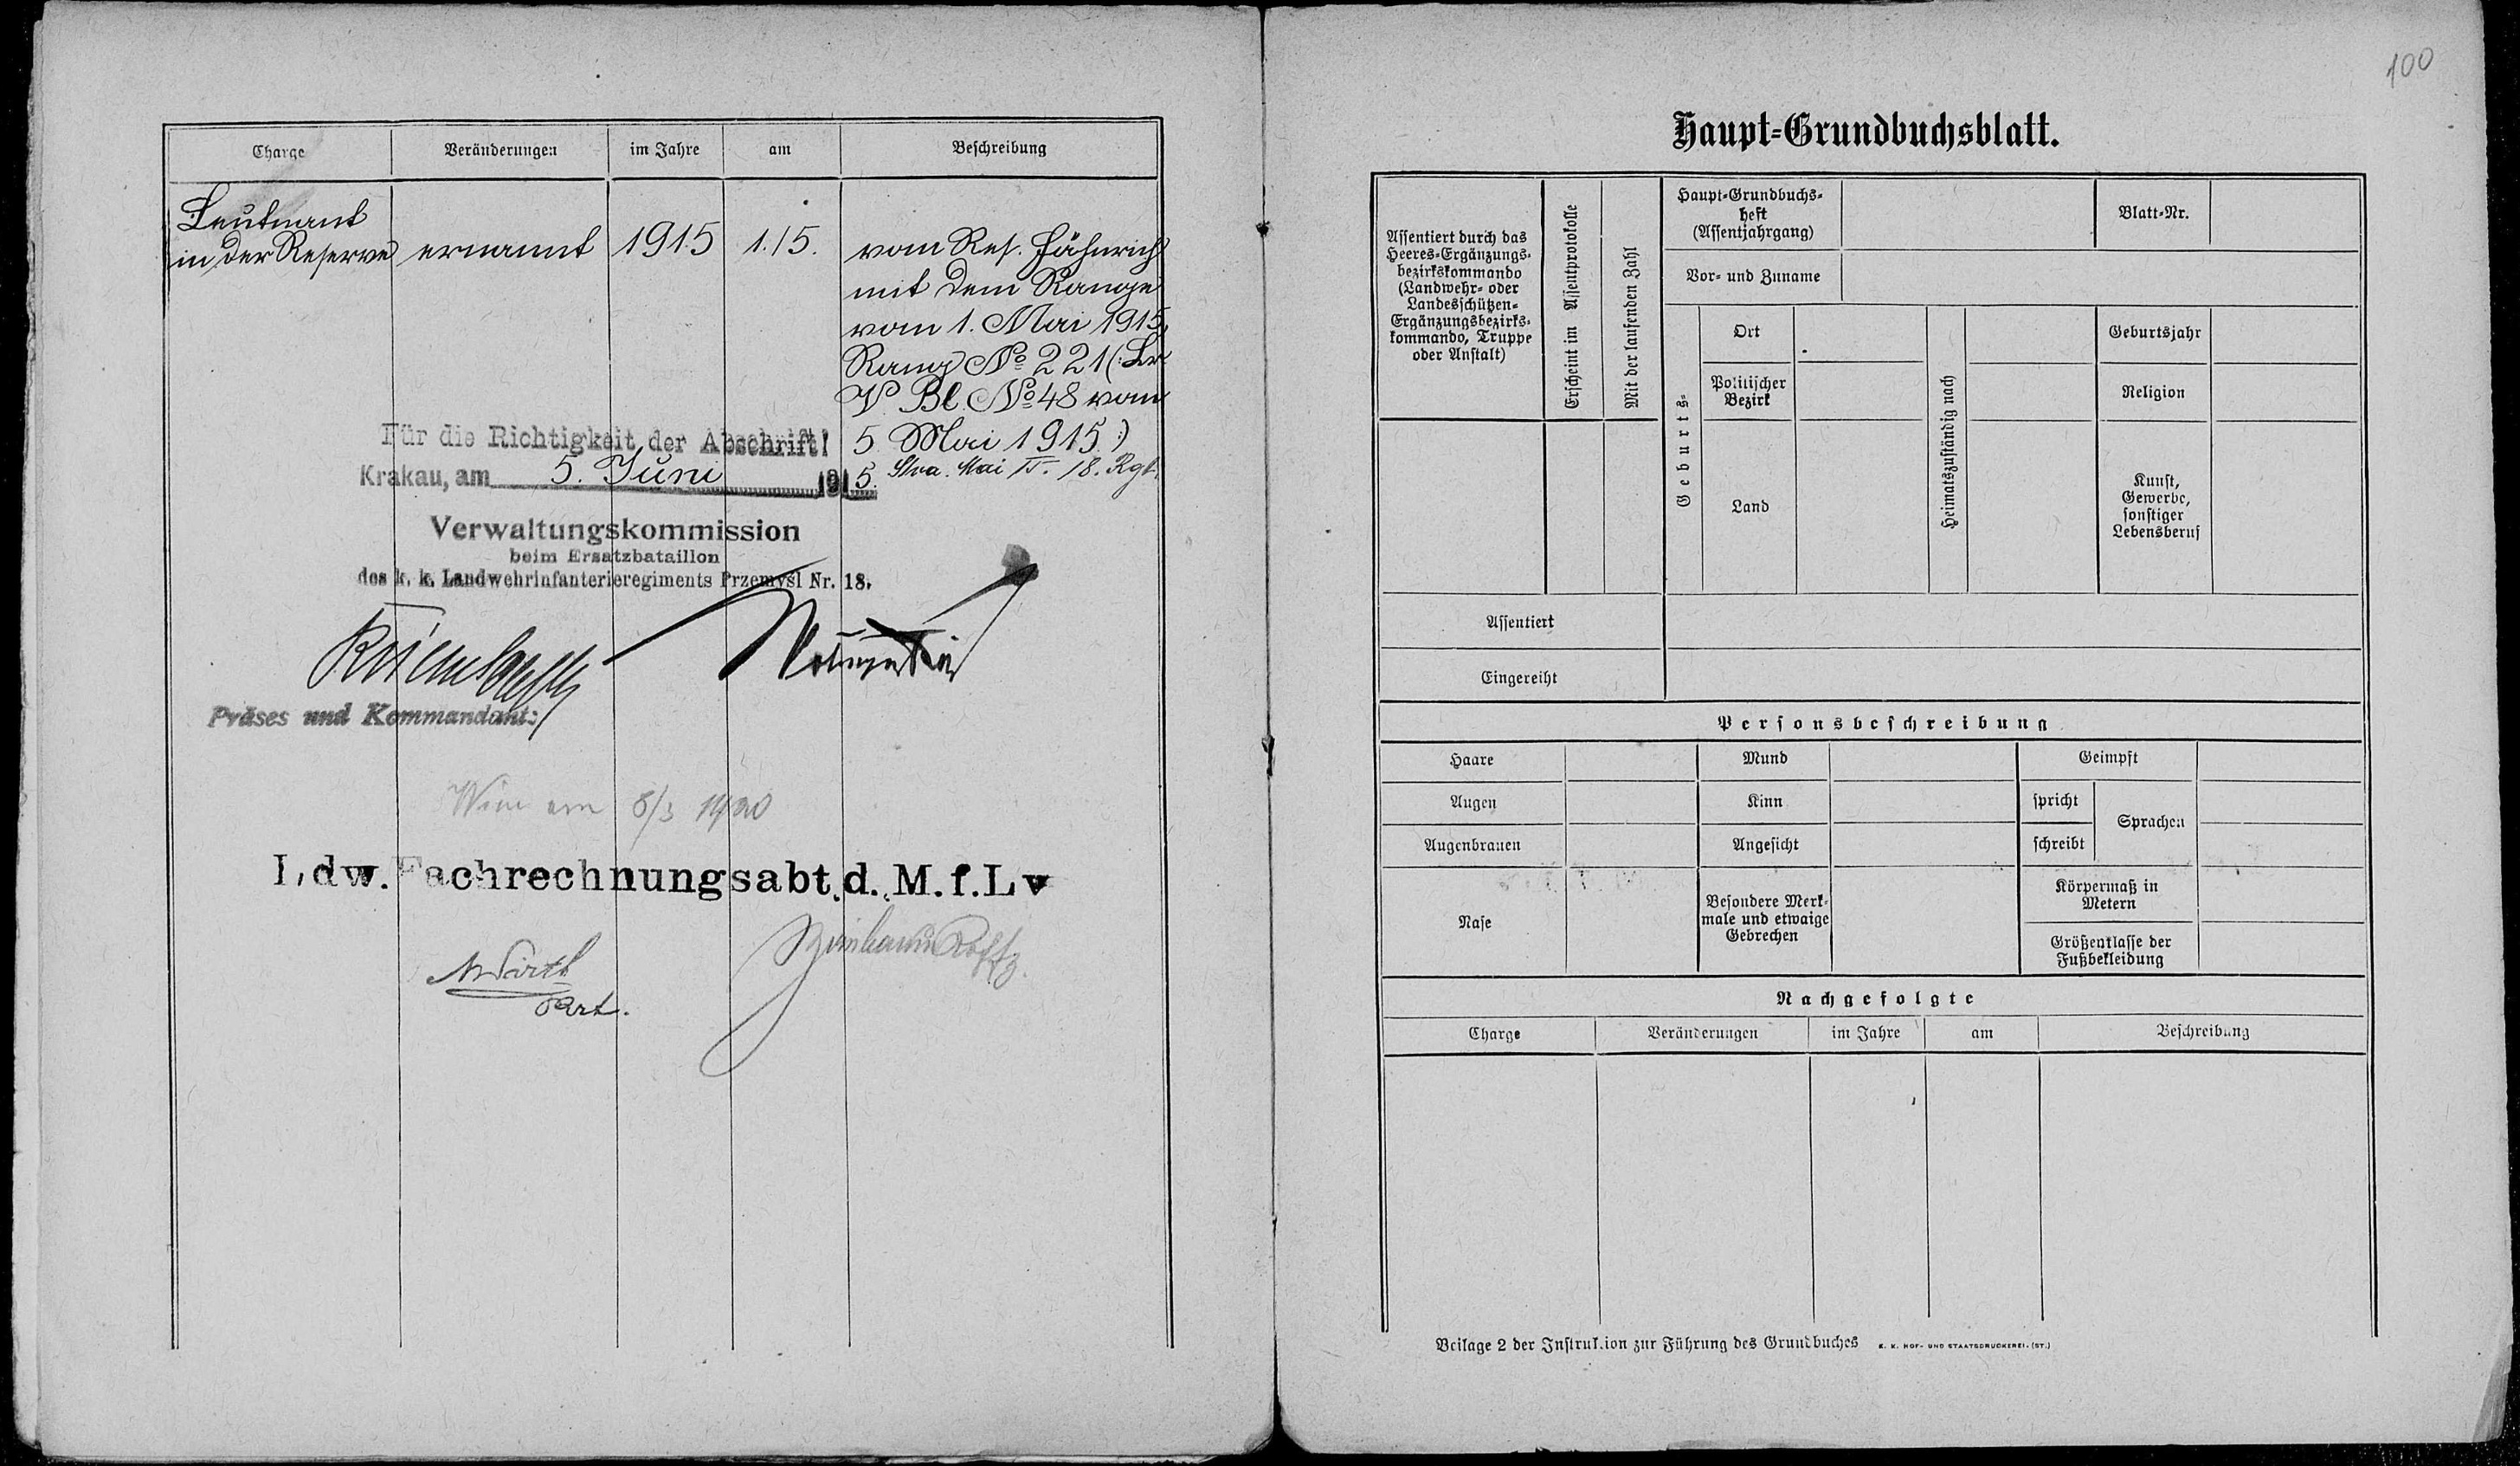 Charge Veränderungen im Jahre am Beschreibung
Leutnant
in der Reserve ernannt 1915 1./5. vom Res. Fähnrich
mit dem Range
vom 1. Mai 1915,
Rang No 221 (: Ldw
V. Bl. No 48 vom
5. Mai 1915 :)
Für die Richtigkeit der Abschrift!
Krakau, am 5. Juni 1915.
Mai 18. Rgt.
Verwaltungskommission
beim Ersatzbataillon
des k. k. Landwehrinfanterieregiments Przemysl Nr. 18.
Präses und Kommandant:
Wien am 8/3 1920
Ldw. Fachrechnungsabt. d. M. f. Lv
100
Haupt-Grundbuchsblatt.
Assentiert durch das
Heeres-Ergänzungs-
bezirkskommando
(Landwehr- oder
Landesschützen-
Ergänzungsbezirks-
kommando, Truppe
oder Anstalt)
Erscheint im Assentprotokolle
Mit der laufenden Zahl
Haupt-Grundbuchs-
heft
(Assentjahrgang)
Blatt-Nr.
Vor- und Zuname
Geburts-
Ort
Politischer
Bezirk
Land
Heimatszuständig nach
Geburtsjahr
Religion
Kunst,
Gewerbe,
sonstiger
Lebensberuf
Assentiert
Eingereiht
Personsbeschreibung
Haare Mund Geimpft
Augen Kinn spricht Sprachen
Augenbrauen Angesicht schreibt
Nase
Besondere Merk-
male und etwaige
Gebrechen
Körpermaß in
Metern
Größenklasse der
Fußbekleidung
Nachgefolgte
Charge Veränderungen im Jahre am Beschreibung
Beilage 2 der Instruktion zur Führung des Grundbuches K. K. HOF- UND STAATSDRUCKEREI. (ST.)